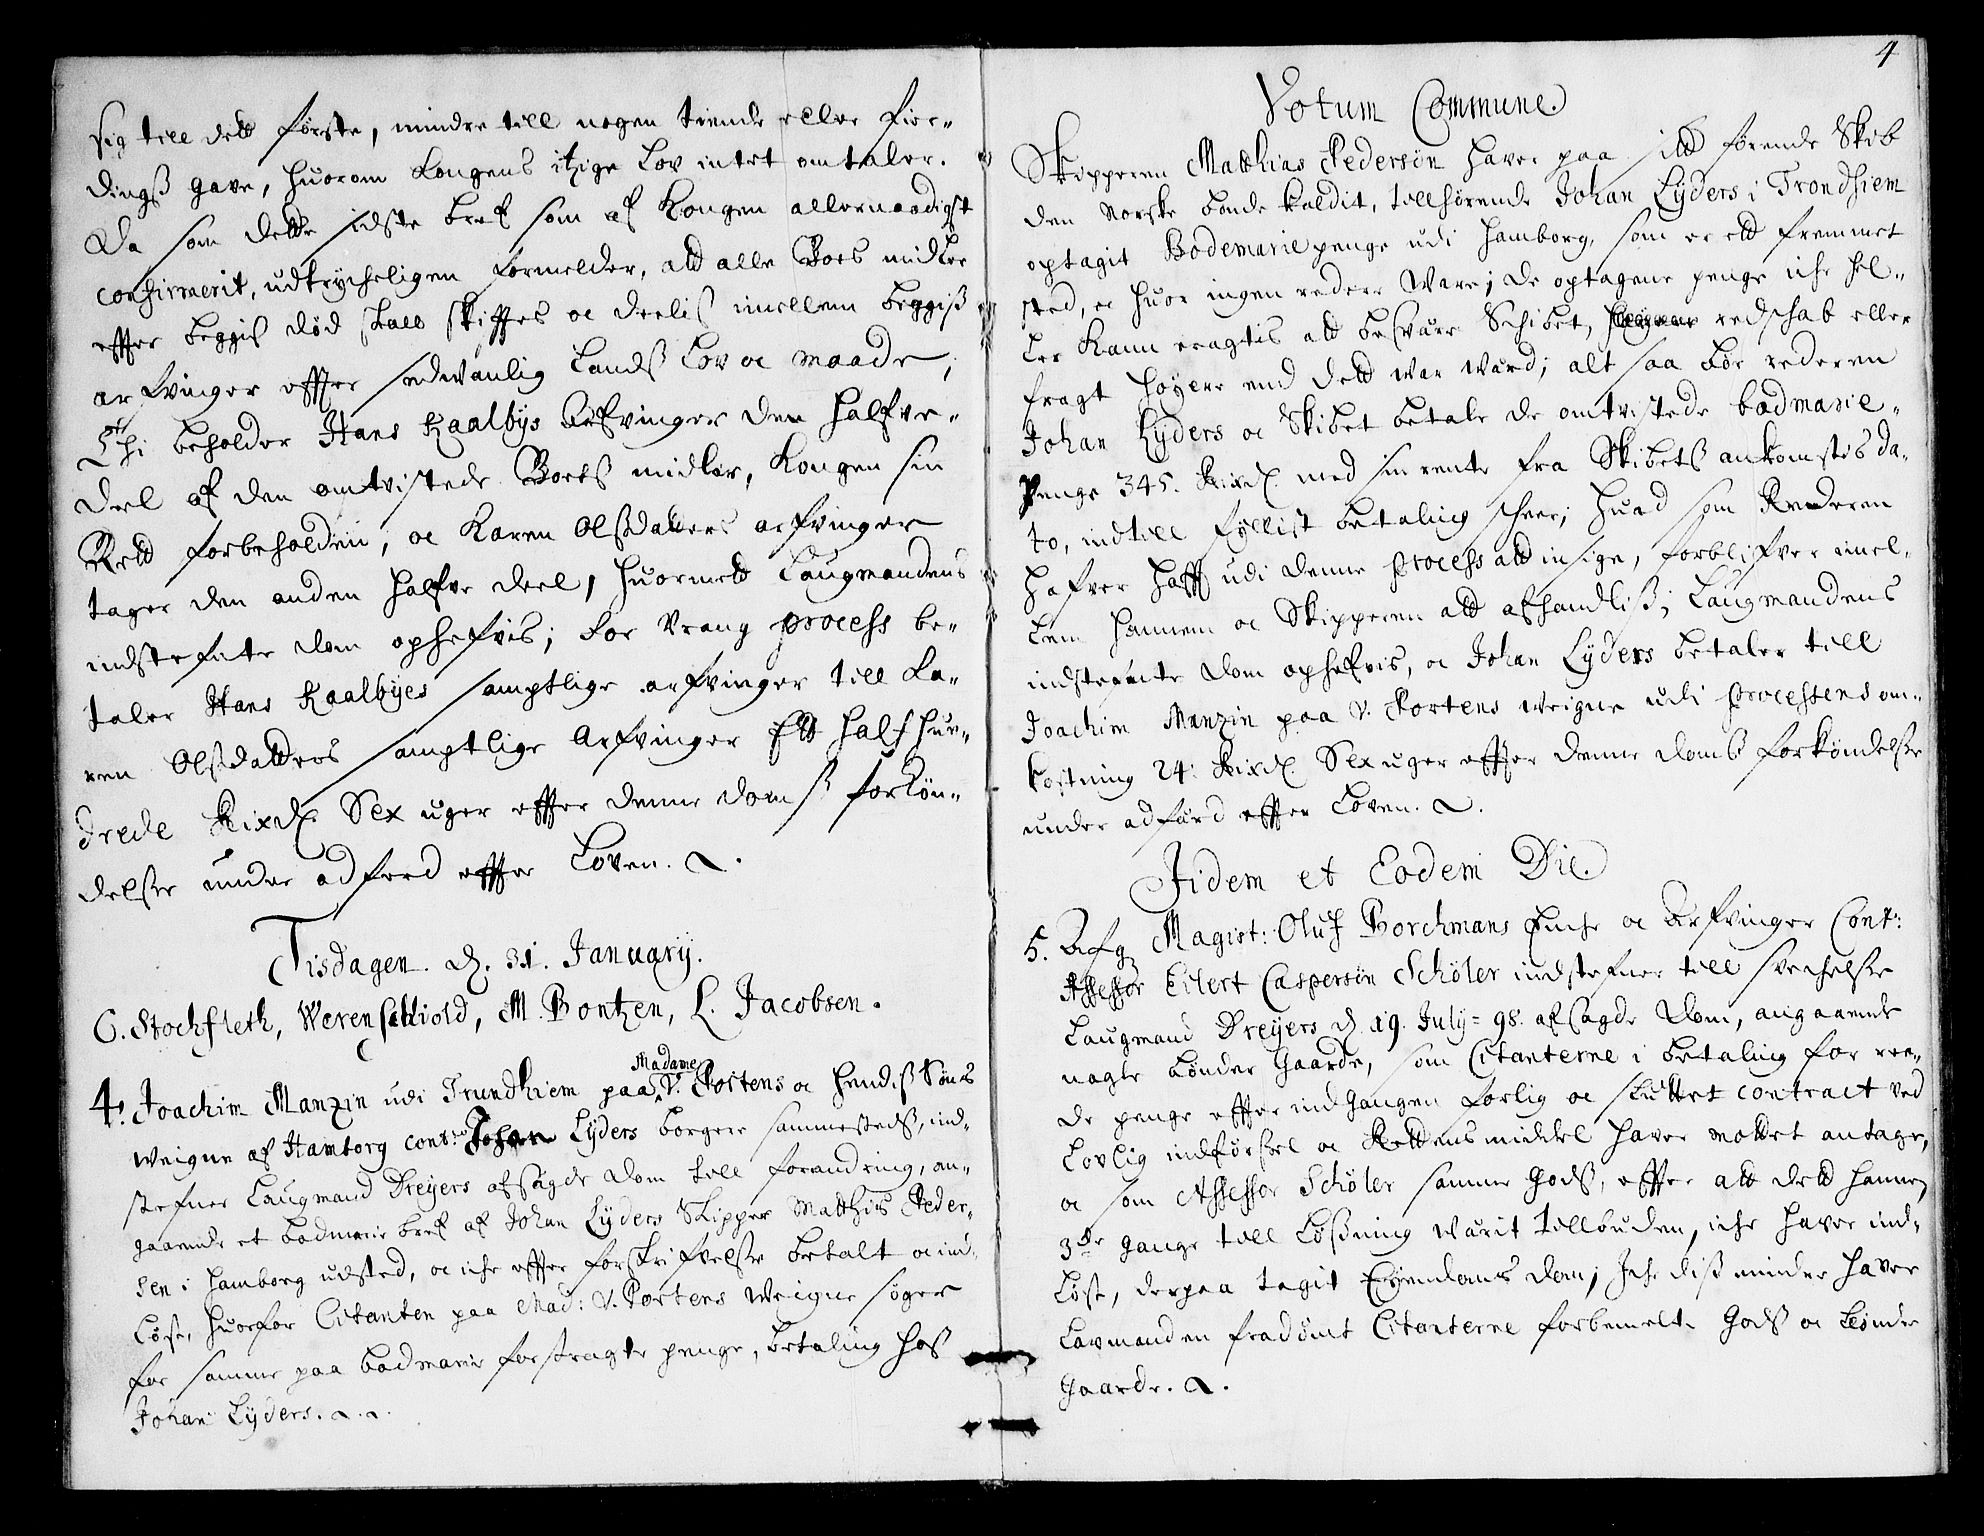 sig till dett første, mindre till nogen tiende eller fier-
dingß gave, huorom Kongens itzige Lov intet omtaler.
Da som dette sidste bref som af Kongen allernaadigst
confirmerit, udtrycheligen formelder, att alle Boes midler
effter beggis død skall skifftes oc deelis imellem beggiß
arfvinger effter sædvanlig Landß Lov oc maade,
Thi beholder Hans Kaalbys Arfvinger den halfve-
deel af den omtvistede Boets midler, Kongen sin
Rett forbeholden; oc Karen Olßdatters arfvinger
tager den anden halfve deel, huormed Laugmandens
indstefnte dom ophefvis; for vrang process be-
taler Hans Kaalbyes samptlige arfvinger till Ka-
ren Olßdatters samptlige Arfvinger Ett half hun-
drede Rixd. Sex uger effter denne domß forkyn-
delsse under adferd effter Loven.
Tisdagen. d. 31. January.
C. Stochfleth, Werenschiold, M. Bontzen, L. Jacobsen.
4. Joachim Manzin udi Trundhiem paa Madame V. Portens oc hendiß Søns
weigne af Hamborg cont: Johan Lÿders borgere sammestedß, ind-
stefner Laugmand Dreÿers afsagde dom till forandring, an-
gaaende et badmerie bref af Johan Lÿders Skipper Matthis Peder-
sen i Hamborg udsted, oc iche effter forskrifvelsse betalt oc ind-
løst, huorfor Citanten paa Mad: V. Portens weigne søger
for samme paa badmarie forstragte penge, betaling hoß
Johan Lÿders.
4
Votum Commune.
Skipperen Matthias Pedersøn haver paa sitt førende Skib
den Norske bonde kaldit, tillhørende Johan Lÿders i Trondhiem
optagit Bodemarie penge udi Hamborg, som er ett fremmet
sted, oc huor ingen redere ware; de optagene penge iche hel-
ler kand eragtis att besvære Schibet, redschab eller
fragt høyere end dett war wærd; alt saa bør rederen
Johan Lÿders oc Skibet betale de omtvistede badmarie-
penge 345. Rixd. med sin rente fra Skibets ankomstes da-
to, indtill fyllist betaling scheer; huad som Rederen
hafver hafft udi denne process att indsige, forblifver imel-
lem hannem oc Skipperen att afhandliß; Laugmandens
indstefnte dom ophefvis, oc Johan Lÿders betaler till
Joachim Manzin paa V. Portens weigne udi processens om-
kostning 24. Rixd. Sex uger effter denne domß forkyndelsse
under adfærd effter Loven.
Jidem et Eodem Die.
5. Afg Magist: Oluf Borchmans Enche oc Arfvinger Cont:
Assessor Eilert Caspersøn Schøler indstefner till svechelsse
Laugmand Dreÿers d. 19. Julÿ = 98. afsagde dom, angaaende
nogle bønder Gaarde, som Citanterne i betaling for ree-
de penge effter indgangen forlig oc sluttet contract ved
Lovlig indførsel oc Rettens middel haver mottet antage,
oc som Assessor Schøler samme godß, effter att dett hannem
3de gange till Løßning wærit tillbuden, iche haver ind-
løst, derpaa tagit Eyendoms dom; Iche diß minder haver
Lavmanden fradømt Citanterne forbemelte Godß oc bønder
gaarde.